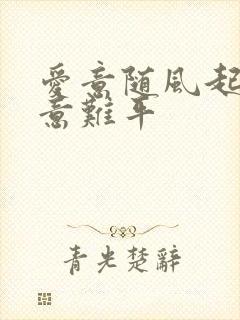 愛意随風起
意難平
青光楚辭